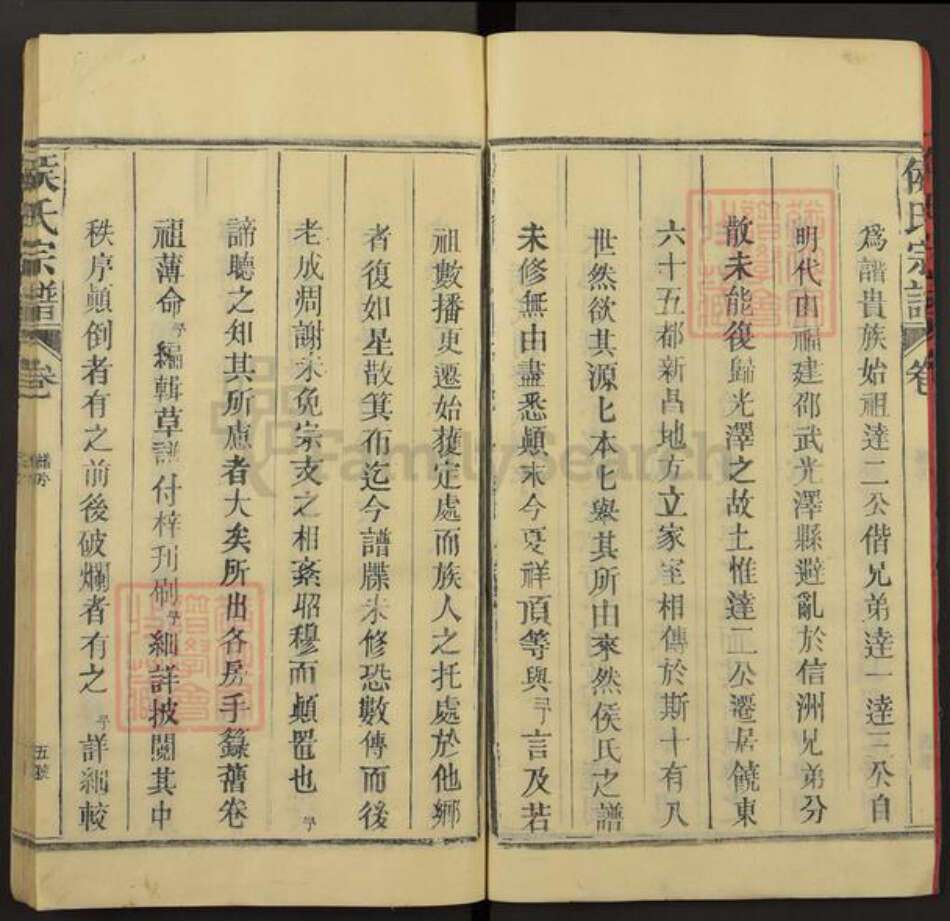 侯氏宗譜 卷
為譜貴族始祖達二公偕兄弟達一達三公自
明代由福建邵武光澤縣避亂於信洲兄弟分
散未能復歸光澤之故土惟達二公遷居饒東
六十五都新昌地方立家室相傳於斯十有八
世然欲其源七本七舉其所由來然侯氏之譜
未修無由盡悉顛末今夏祥頂等與予言及若
祖數播更遷始獲定處而族人之托處於他鄉
者復如星散箕布迄今譜牒未修恐數傳而後
老成凋謝未免宗支之相紊昭穆而顛置也予
諦聽之知其所慮者大矣所出各房手錄舊卷
祖薄命予編輯草譜付梓刊刷予細詳披閱其中
秩序顛倒者有之前後破爛者有之予詳細較
侯氏宗譜 卷
五號
FamilySearch